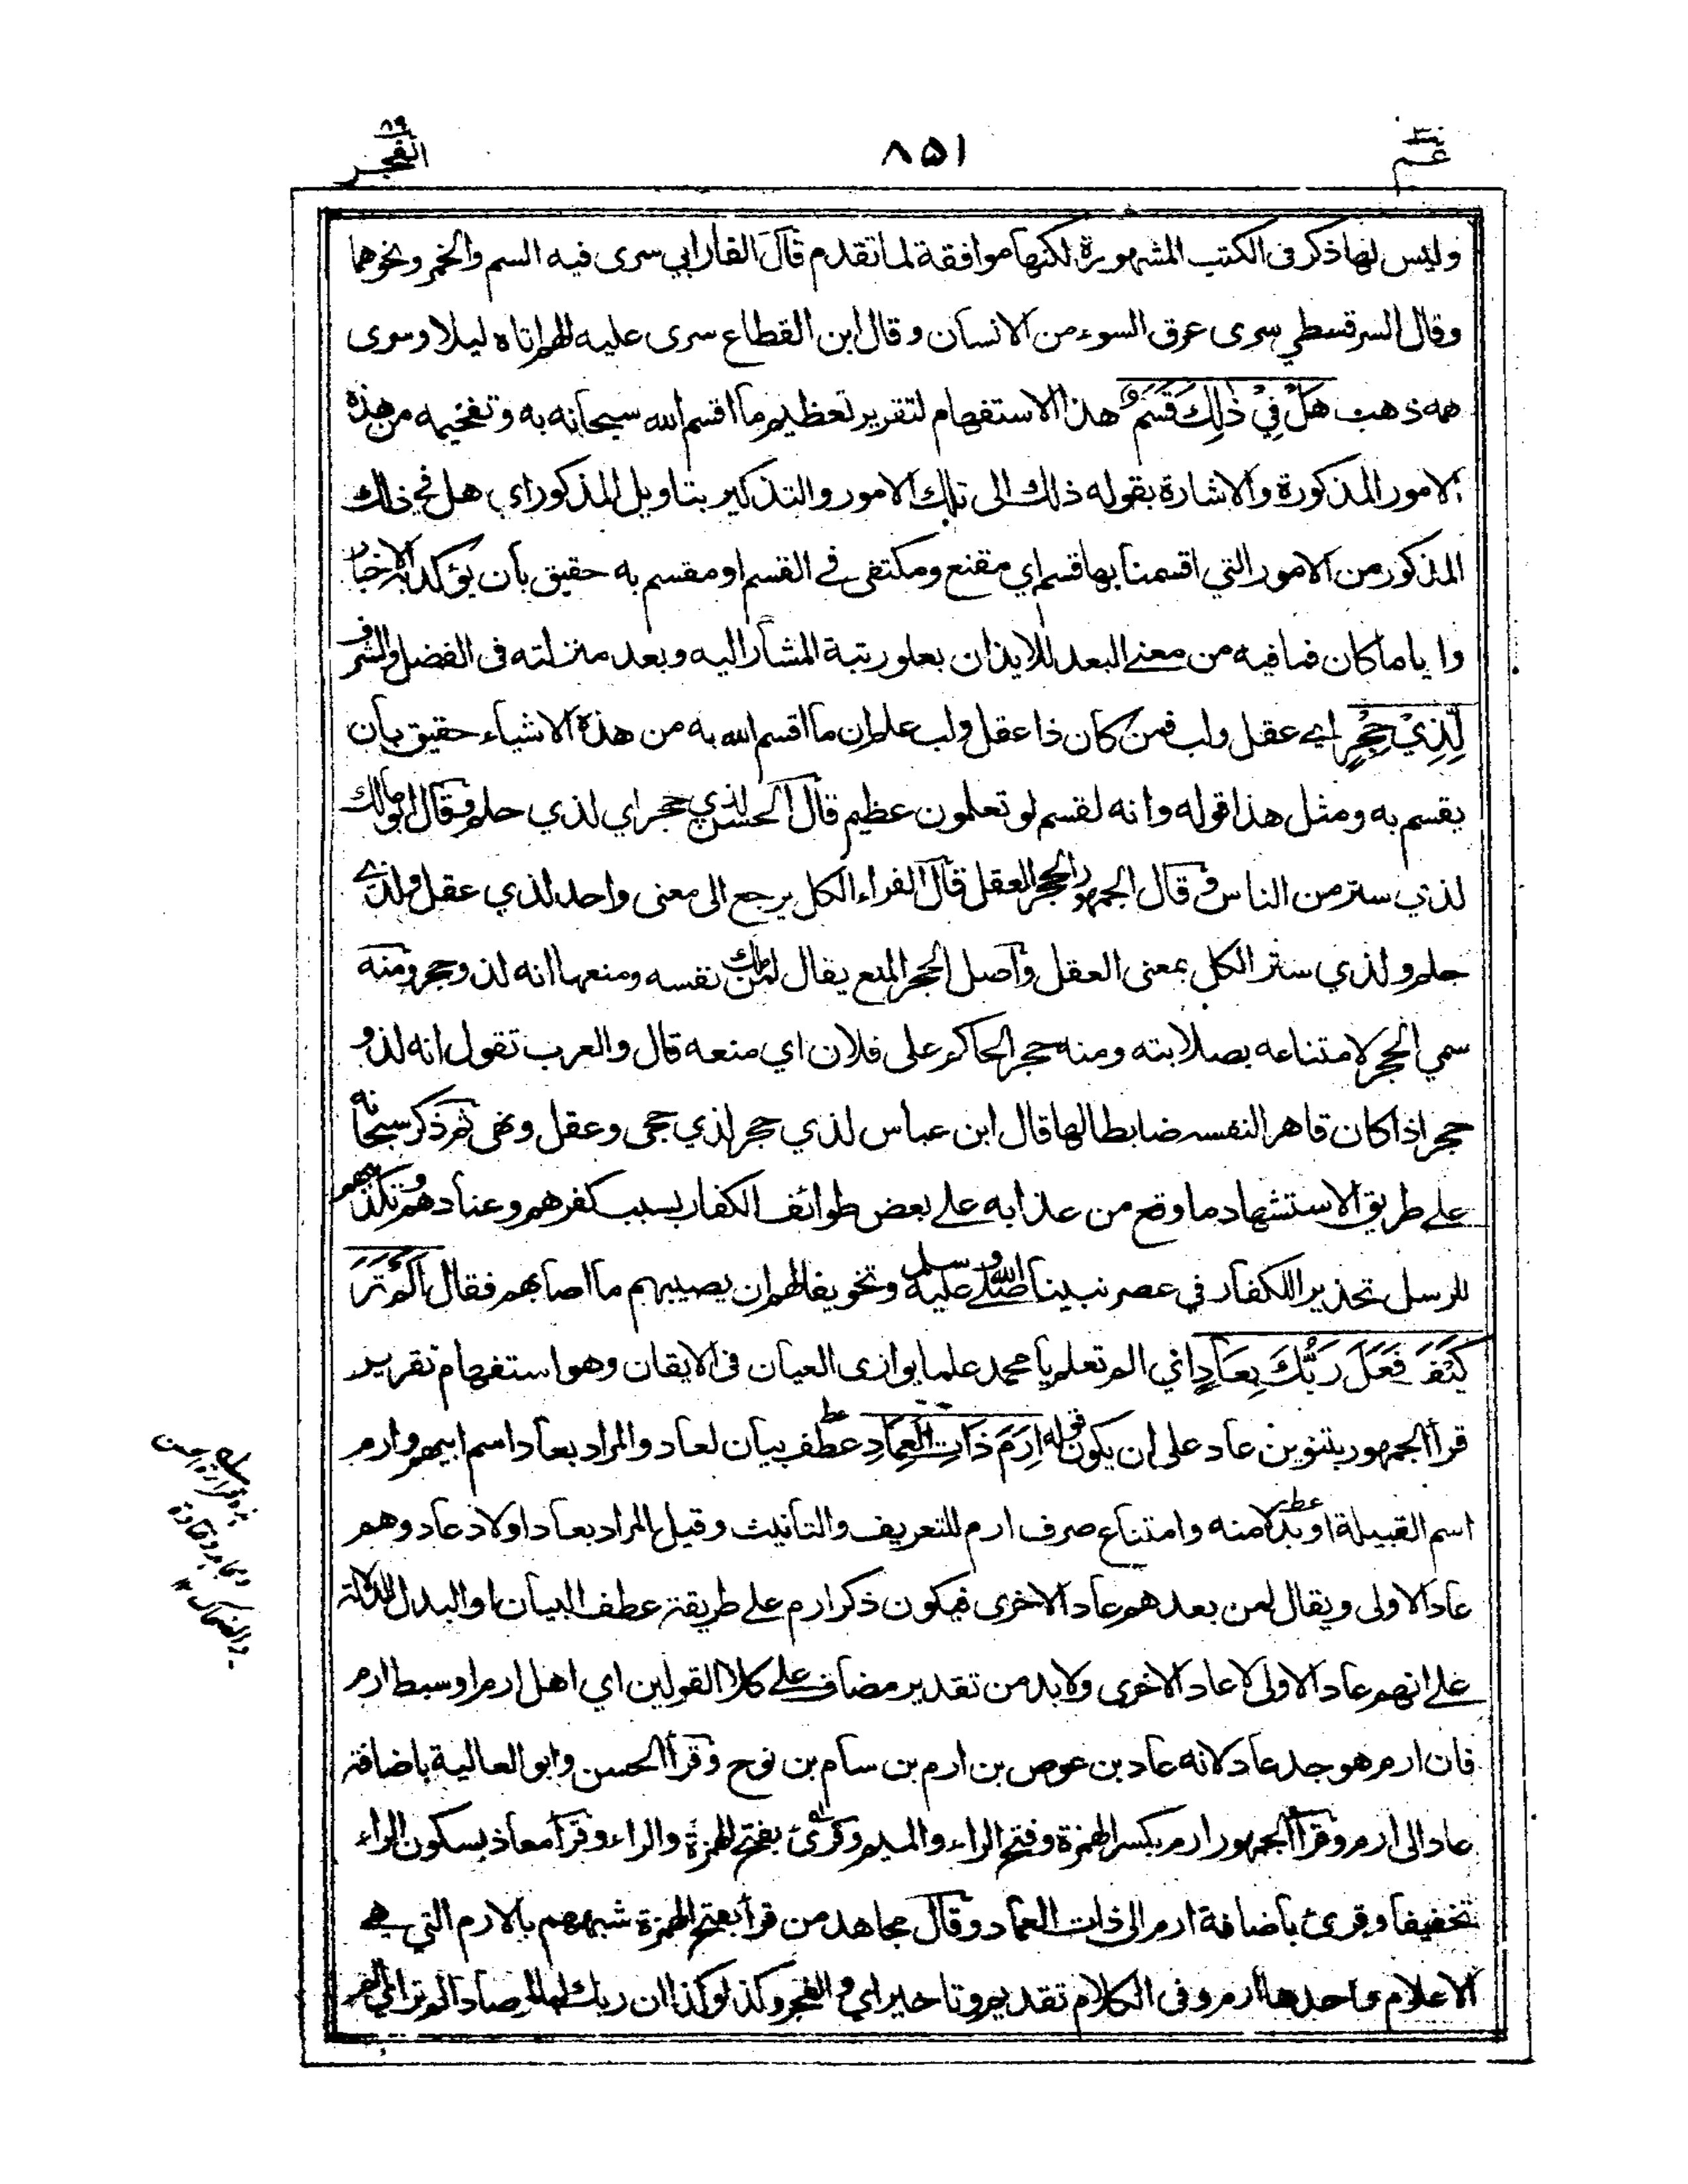 عم ٣٠
٨٥١
٨٩ الفجر
وليس لها ذكر فى الكتب المشهورة لكنها موافقة لما تقدم قال الفارابي سرى فيه السم والخمر ونحوهما
وقال السرقسطي سرى عرق السوء من الانسان وقال ابن القطاع سرى عليه الهم اتاه ليلا وسرى
همه ذهب هَلْ فِيْ ذٰلِكَ قَسَمٌ هذا الاستفهام لتقرير تعظيم ما اقسم الله سبحانه به وتفخيمه من هذه
الامور المذكورة والاشارة بقوله ذلك الى تلك الامور والتذكير بتاويل المذكور اي هل في ذلك
المذكور من الامور التي اقسمنا بها قسم اي مقنع ومكتفى في القسم او مقسم به حقيق بأن يؤكد به الاخبار
وايا ما كان فما فيه من معنى البعد للايذان بعلو رتبة المشار اليه وبعد منزلته فى الفضل والشرف
لِّذِيْ حِجْرٍ اي عقل ولب فمن كان ذا عقل ولب علم ان ما اقسم الله به من هذه الاشياء حقيق بان
يقسم به ومثل هذا قوله وانه لقسم لو تعلمون عظيم قال الحسن لذي حجر اي لذي حلم وقال ابو مالك
لذي ستر من الناس وقال الجمهور الحجر العقل قال الفراء الكل يرجع الى معنى واحد لذي عقل ولذي
حلم ولذي ستر الكل بمعنى العقل واصل الحجر المنع يقال لمن ملك نفسه ومنعها انه لذو حجر ومنه
سمي الحجر لامتناعه بصلابته ومنه حجر الحاكم على فلان اي منعه قال والعرب تقول انه لذو
حجر اذا كان قاهرا لنفسه ضابطا لها قال ابن عباس لذي حجر لذي حجى وعقل ونهى ثم ذكر سبحانه
على طريق الاستشهاد ما وقع من عذابه على بعض طوائف الكفار بسبب كفرهم وعنادهم وتكذيبهم
للرسل تحذيرا للكفار في عصر نبينا صلى الله عليه وسلم وتخويفا لهم ان يصيبهم ما اصابهم فقال اَلَمْ تَرَ
كَيْفَ فَعَلَ رَبُّكَ بِعَادٍ اي الم تعلم يا محمد علما يوازى العيان فى الايقان وهو استفهام تقرير
قرأ الجمهور بتنوين عاد على ان يكون قوله اِرَمَ ذَاتِ الْعِمَادِ عطف بيان لعاد والمراد بعاد اسم ابيهم وارم
اسم القبيلة او بدلا منه وامتناع صرف ارم للتعريف والتأنيث وقيل المراد بعاد اولاد عاد وهم
عاد الاولى ويقال لمن بعدهم عاد الاخرى فيكون ذكر ارم على طريقة عطف البيان او البدل للدلالة
على انهم عاد الاولى لا عاد الاخرى ولا بد من تقدير مضاف على كلا القولين اي اهل ارم او سبط ارم
فان ارم هو جد عاد لانه عاد بن عوص بن ارم بن سام بن نوح وقرأ الحسن وابو العالية باضافة
عاد الى ارم وقرأ الجمهور ارم بكسر الهمزة وفتح الراء والميم وقرئ بفتح الهمزة والراء وقرأ معاذ بسكون الراء
تخفيفا وقرئ باضافة ارم الى ذات العماد وقال مجاهد من قرأ بفتح الهمزة شبههم بالارم التي هي
الاعلام واحدها ارم وفى الكلام تقديم وتاخير اي والفجر وكذا وكذا ان ربك لبالمرصاد الم تر اي الم
والضحاك